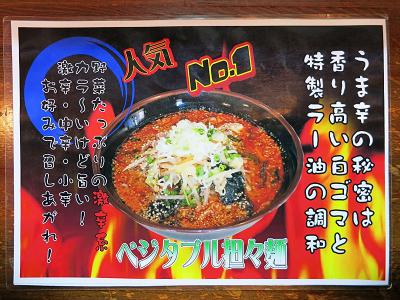 人気
No.1
うま辛の秘密は
香り高い白ゴマと
特製ラー油の調和
野菜たっぷりの激辛系
カラ～いけど旨い！
激辛・中辛・小辛
お好みで召しあがれ！
ベジタブル担々麺